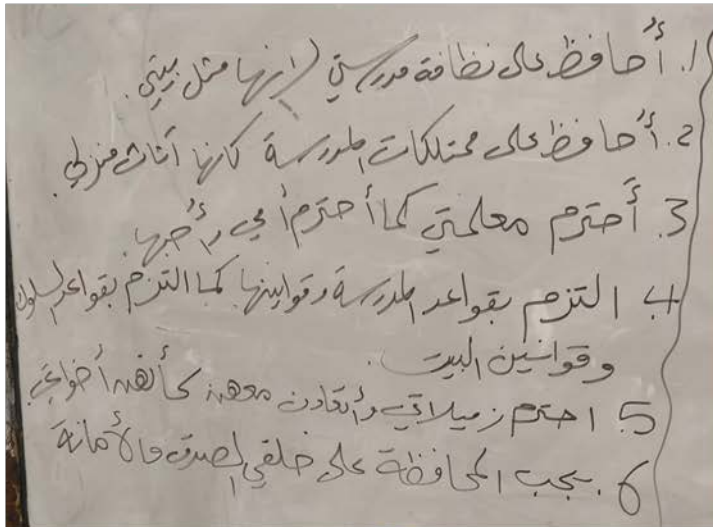 1. أُحافظ على نظافة مدرستي لإنها مثل بيتي.
2. أُحافظ على ممتلكات المدرسة كانها أثاث منزلي.
3. أحترم معلمتي كما أحترم أمي وأُحبها.
4 التزم بقواعد المدرسة وقوانينها كما التزم بقواعد السلوك
وقوانين البيت.
5. احترم زميلاتي وأتعاون معهن كأنهن أخواتي.
6. يجب المحافظة على خلقي الصدق والأمانة